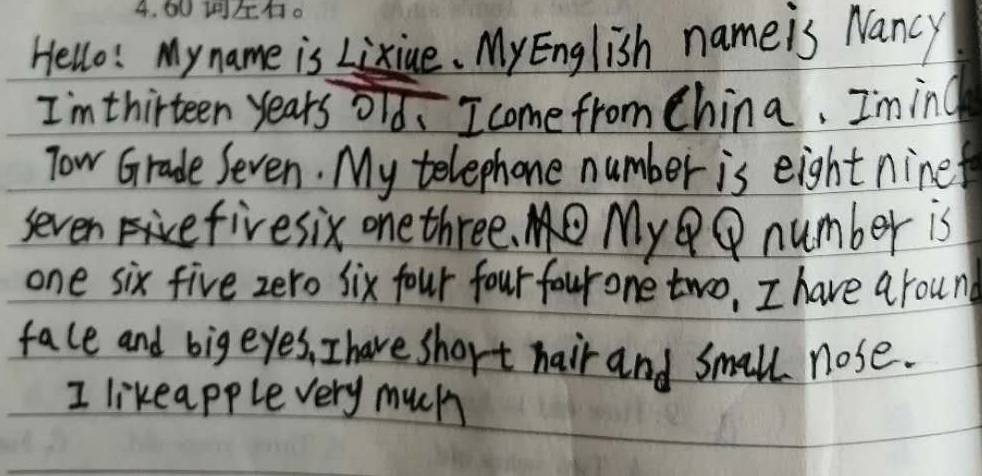 4.60词左右。
Hello! My name is Lixiue. My English name is Nancy.
I'm thirteen years old. I come from China. I'm in
Tow Grade Seven. My telephone number is eight nine
seven five five six one three. My QQ number is
one six five zero six four four four one two, I have a round
face and big eyes, I have short hair and small nose.
I like apple very much